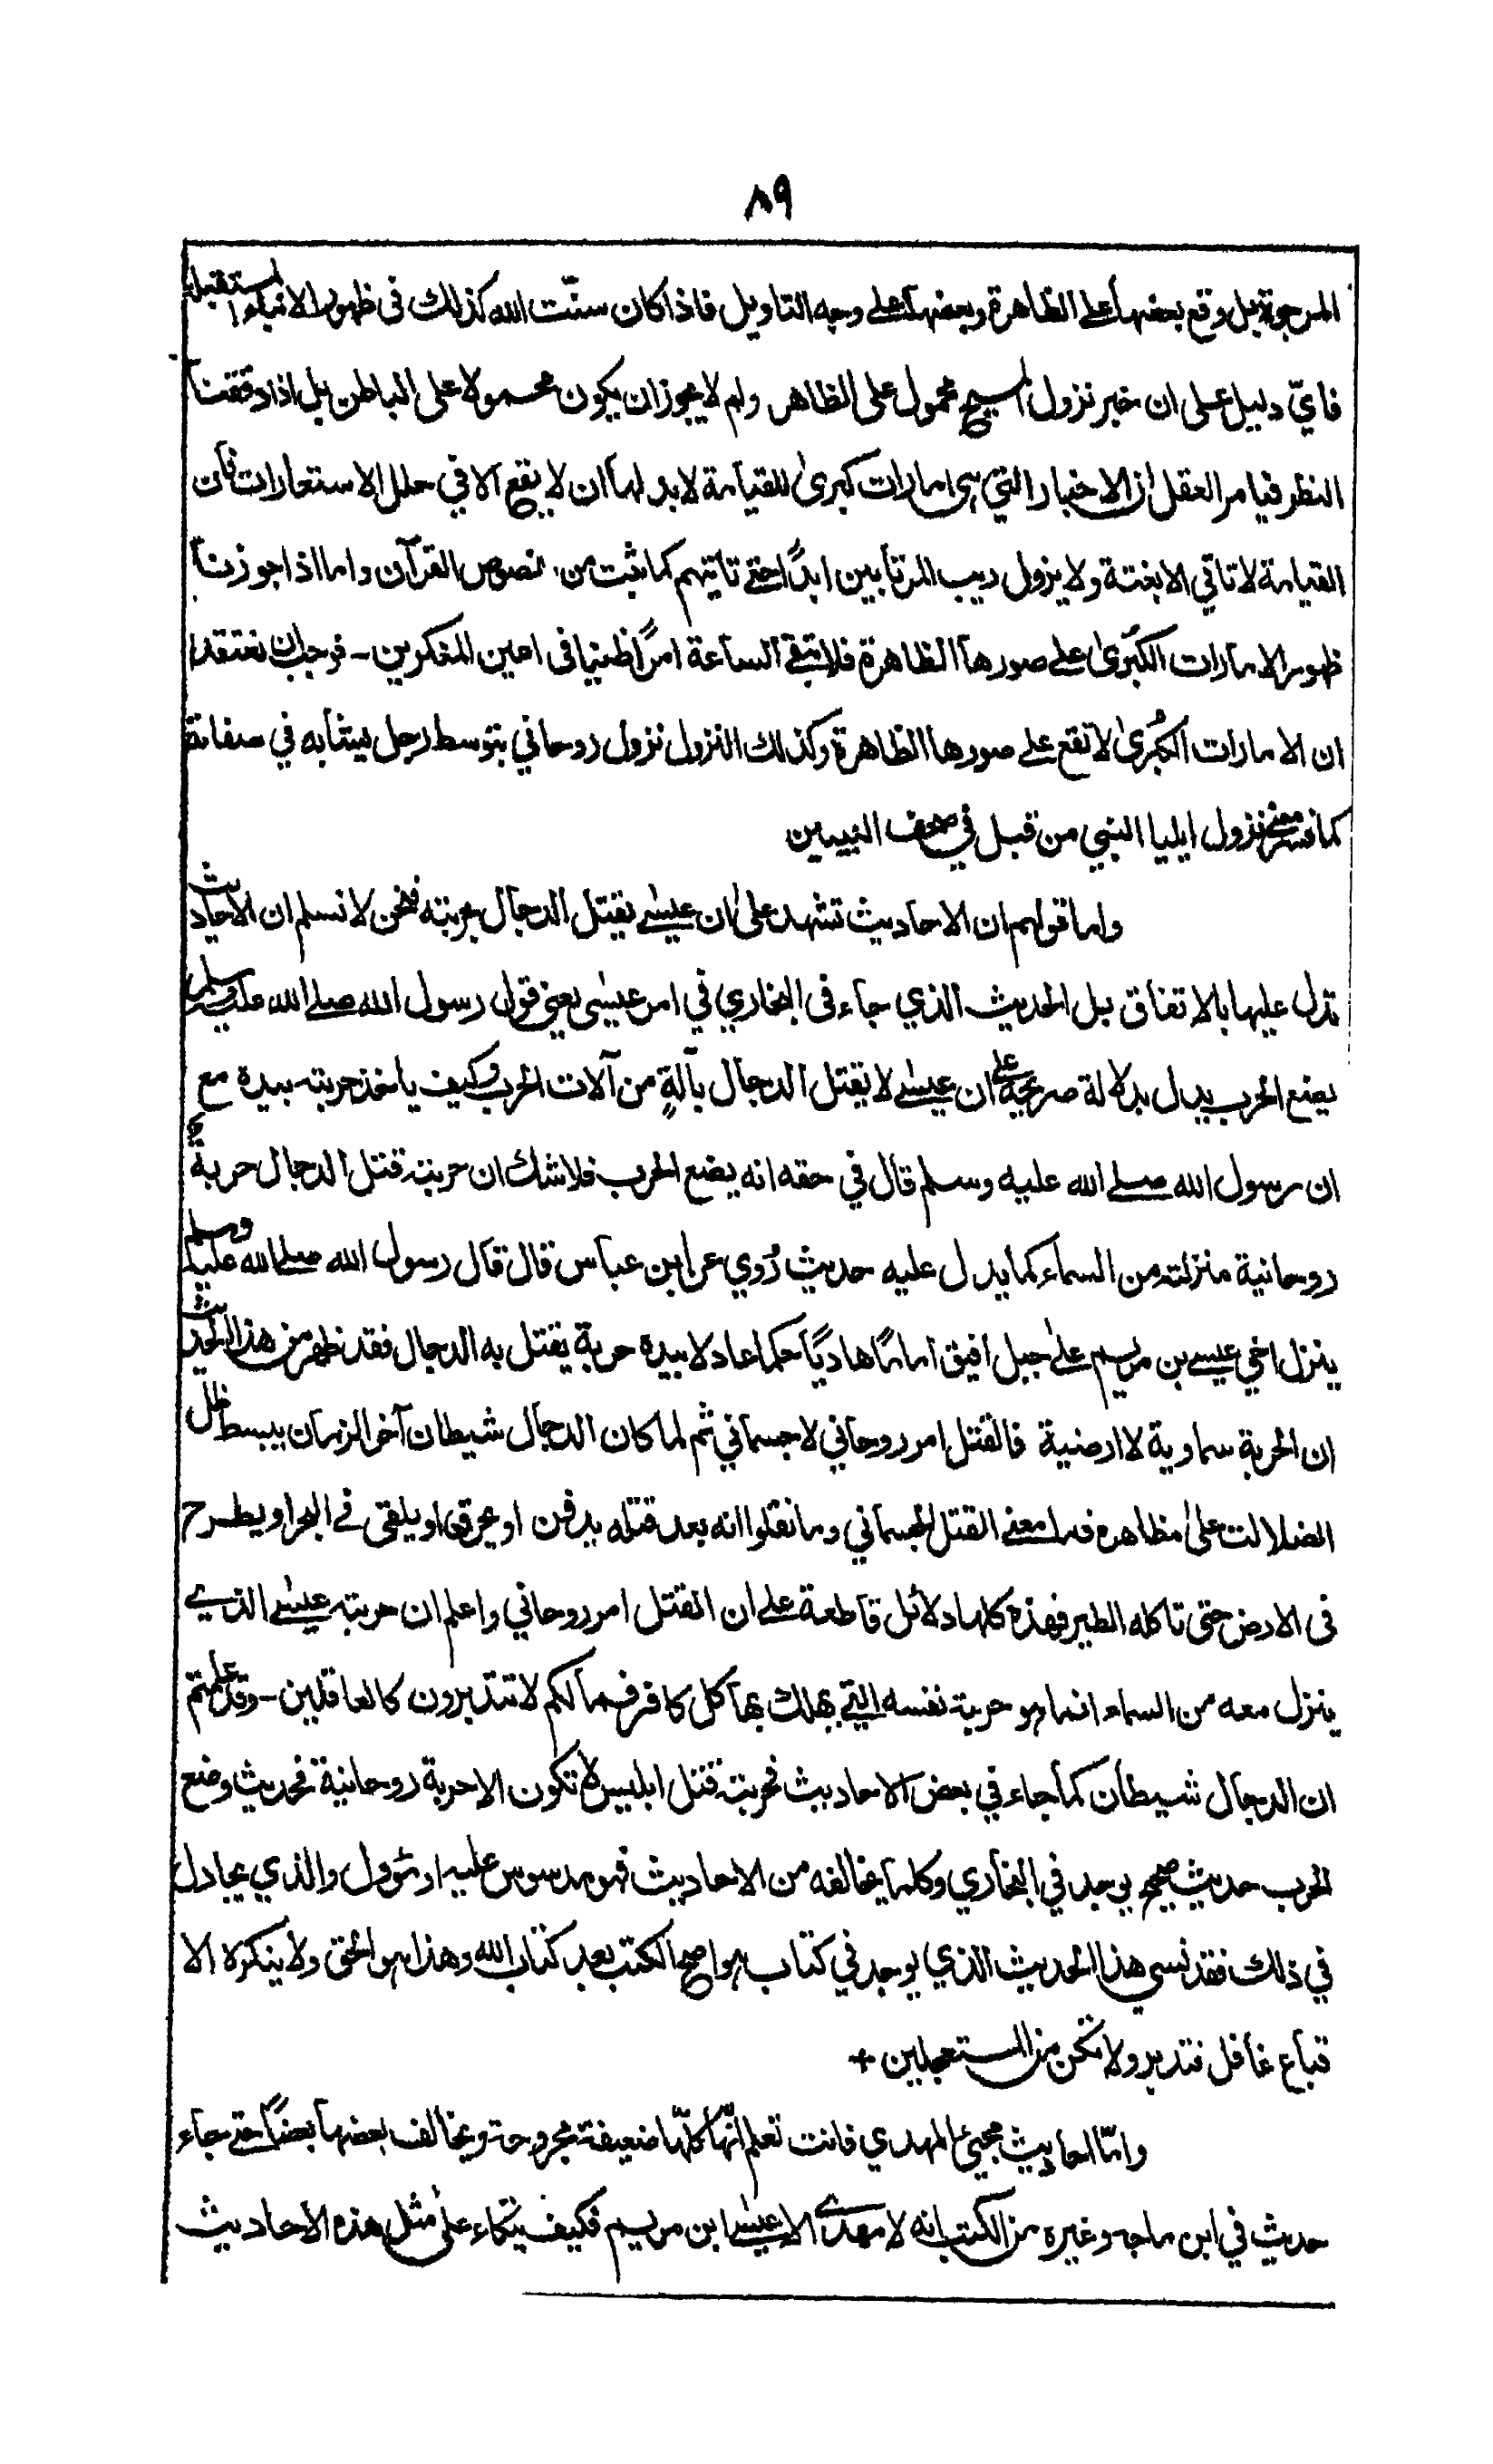 ٨٩
المرجوة بل وقع بعضها على الظاهرة وبعضها على وجه التاويل فاذا كان سنّت الله كذلك في ظهور الانباء المستقبلة
فايّ دليل على ان خبر نزول المسيح محمول على الظاهر ولم لا يجوز ان يكون محمولا على الباطن بل اذا دققنا
النظر فيامر العقل ان الاخبار التي هي امارات كبرىٰ للقيامة لا بد لها ان لا يقع الا في حلل الاستعارات فان
القيامة لا تاتي الا بغتة ولا يزول ريب المرتابين ابدًا حتى تاتيهم كما ثبت من نصوص القرآن واما اذا جوزنا
ظهور الامارات الكبرىٰ على صورها الظاهرة فلا تبقى الساعة امرًا ظنيا في اعين المنكرين - فوجب ان نعتقد
ان الامارات الكُبرىٰ لا تقع على صورها الظاهرة وكذلك النزول نزول روحاني بتوسط رجل يشابه في صفاته
كما فسر معنى نزول ايليا النبي من قبل في صحف النبيين
واما قولهم ان الاحاديث تشهد علىٰ ان عيسىٰ يقتل الدجال بحربته فنحن لا نسلم ان الاحاديث
تدل عليها بالاتفاق بل الحديث الذي جاء في البخاري في امر عيسىٰ يعني قول رسول الله صلى الله عليه وسلم
يضع الحرب يدل بدلالة صريحة على ان عيسىٰ لا يقتل الدجال بآلةٍ من آلات الحرب وكيف ياخذ حربته بيده مع
ان رسول الله صلى الله عليه وسلم قال في حقه انه يضع الحرب فلا شك ان حربته قتل الدجال حربة
روحانية منزلته من السماء كما يدل عليه حديث رُوي عن ابن عباس قال قال رسول الله صلى الله عليه وسلم
ينزل اخي عيسى بن مريم علىٰ جبل افيق امامًا هاديًا حكما عادلا بيده حربة يقتل به الدجال فقد ظهر من هذا الحديث
ان الحربة سماوية لا ارضية فالقتل امر روحاني لا جسماني ثم لما كان الدجال شيطان آخر الزمان يبسط ظل
الضلالت علىٰ مظاهره فما معنى القتل الجسماني وما نقلوا انه بعد قتله يدفن او يحرق او يلقى في البحر او يطرح
في الارض حتى تاكله الطير فهذه كلها دلائل قاطعة على ان القتل امر روحاني واعلم ان حربته عيسىٰ الذي
ينزل معه من السماء انما هو حربة نفسه التي يهلك بها كل كافر فما لكم لا تتدبرون كالعاقلين - وقد علمتم
ان الدجال شيطان كما جاء في بعض الاحاديث فحربته قتل ابليس لا تكون الا حربة روحانية فحديث وضع
الحرب حديث صحيح يوجد في البخاري وكلما يخالفه من الاحاديث فهو مدسوس عليه او مئول والذي يجادل
في ذلك فقد نسي هذا الحديث الذي يوجد في كتاب هو اصح الكتب بعد كتاب الله وهذا هو الحق ولا ينكره الا
قباع غافل فتدبر ولا تكن من المستعجلين +
وامّا احاديث مجيئ المهدي فانت تعلم انّها كلّها ضعيفة مجروحة ويخالف بعضها بعضًا حتى جاء
حديث في ابن ماجه وغيره من الكتب انه لا مهدي الا عيسىٰ ابن مريم فكيف يتكاء علىٰ مثل هذه الاحاديث